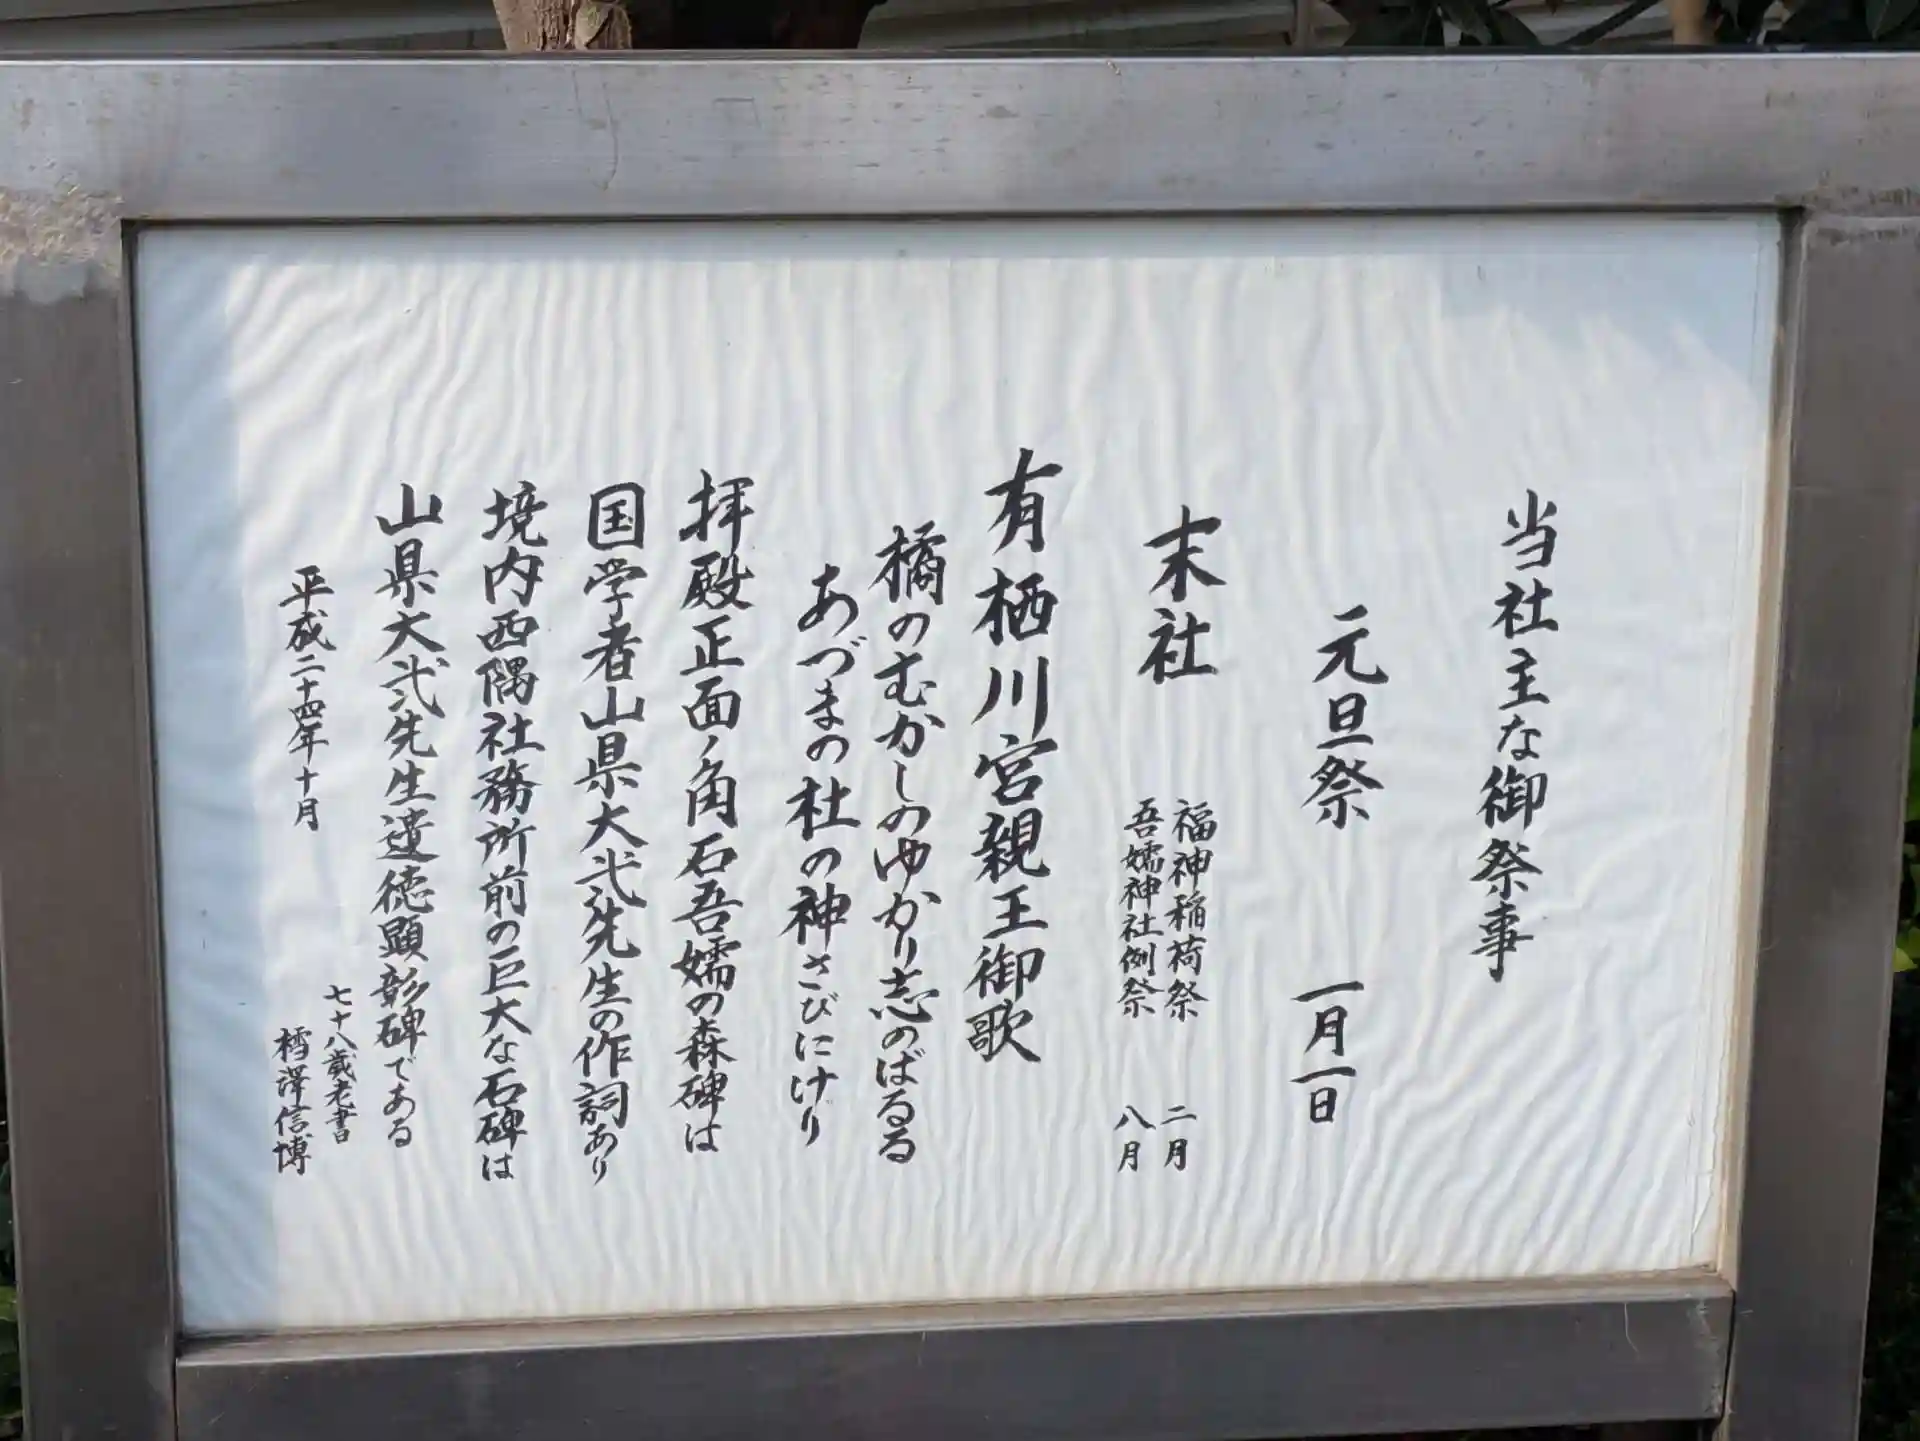 当社主な御祭事
元旦祭 一月一日
末社 福神稲荷祭 二月
吾嬬神社例祭 八月
有栖川宮親王御歌
橘のむかしのゆかり志のばるる
あづまの杜の神さびにけり
拝殿正面ノ角石吾嬬の森碑は
国学者山県大弐先生の作詞あり
境内西隅社務所前の巨大な石碑は
山県大弐先生遺徳顕彰碑である
平成二十四年十月
七十八歳老書
樗澤信博